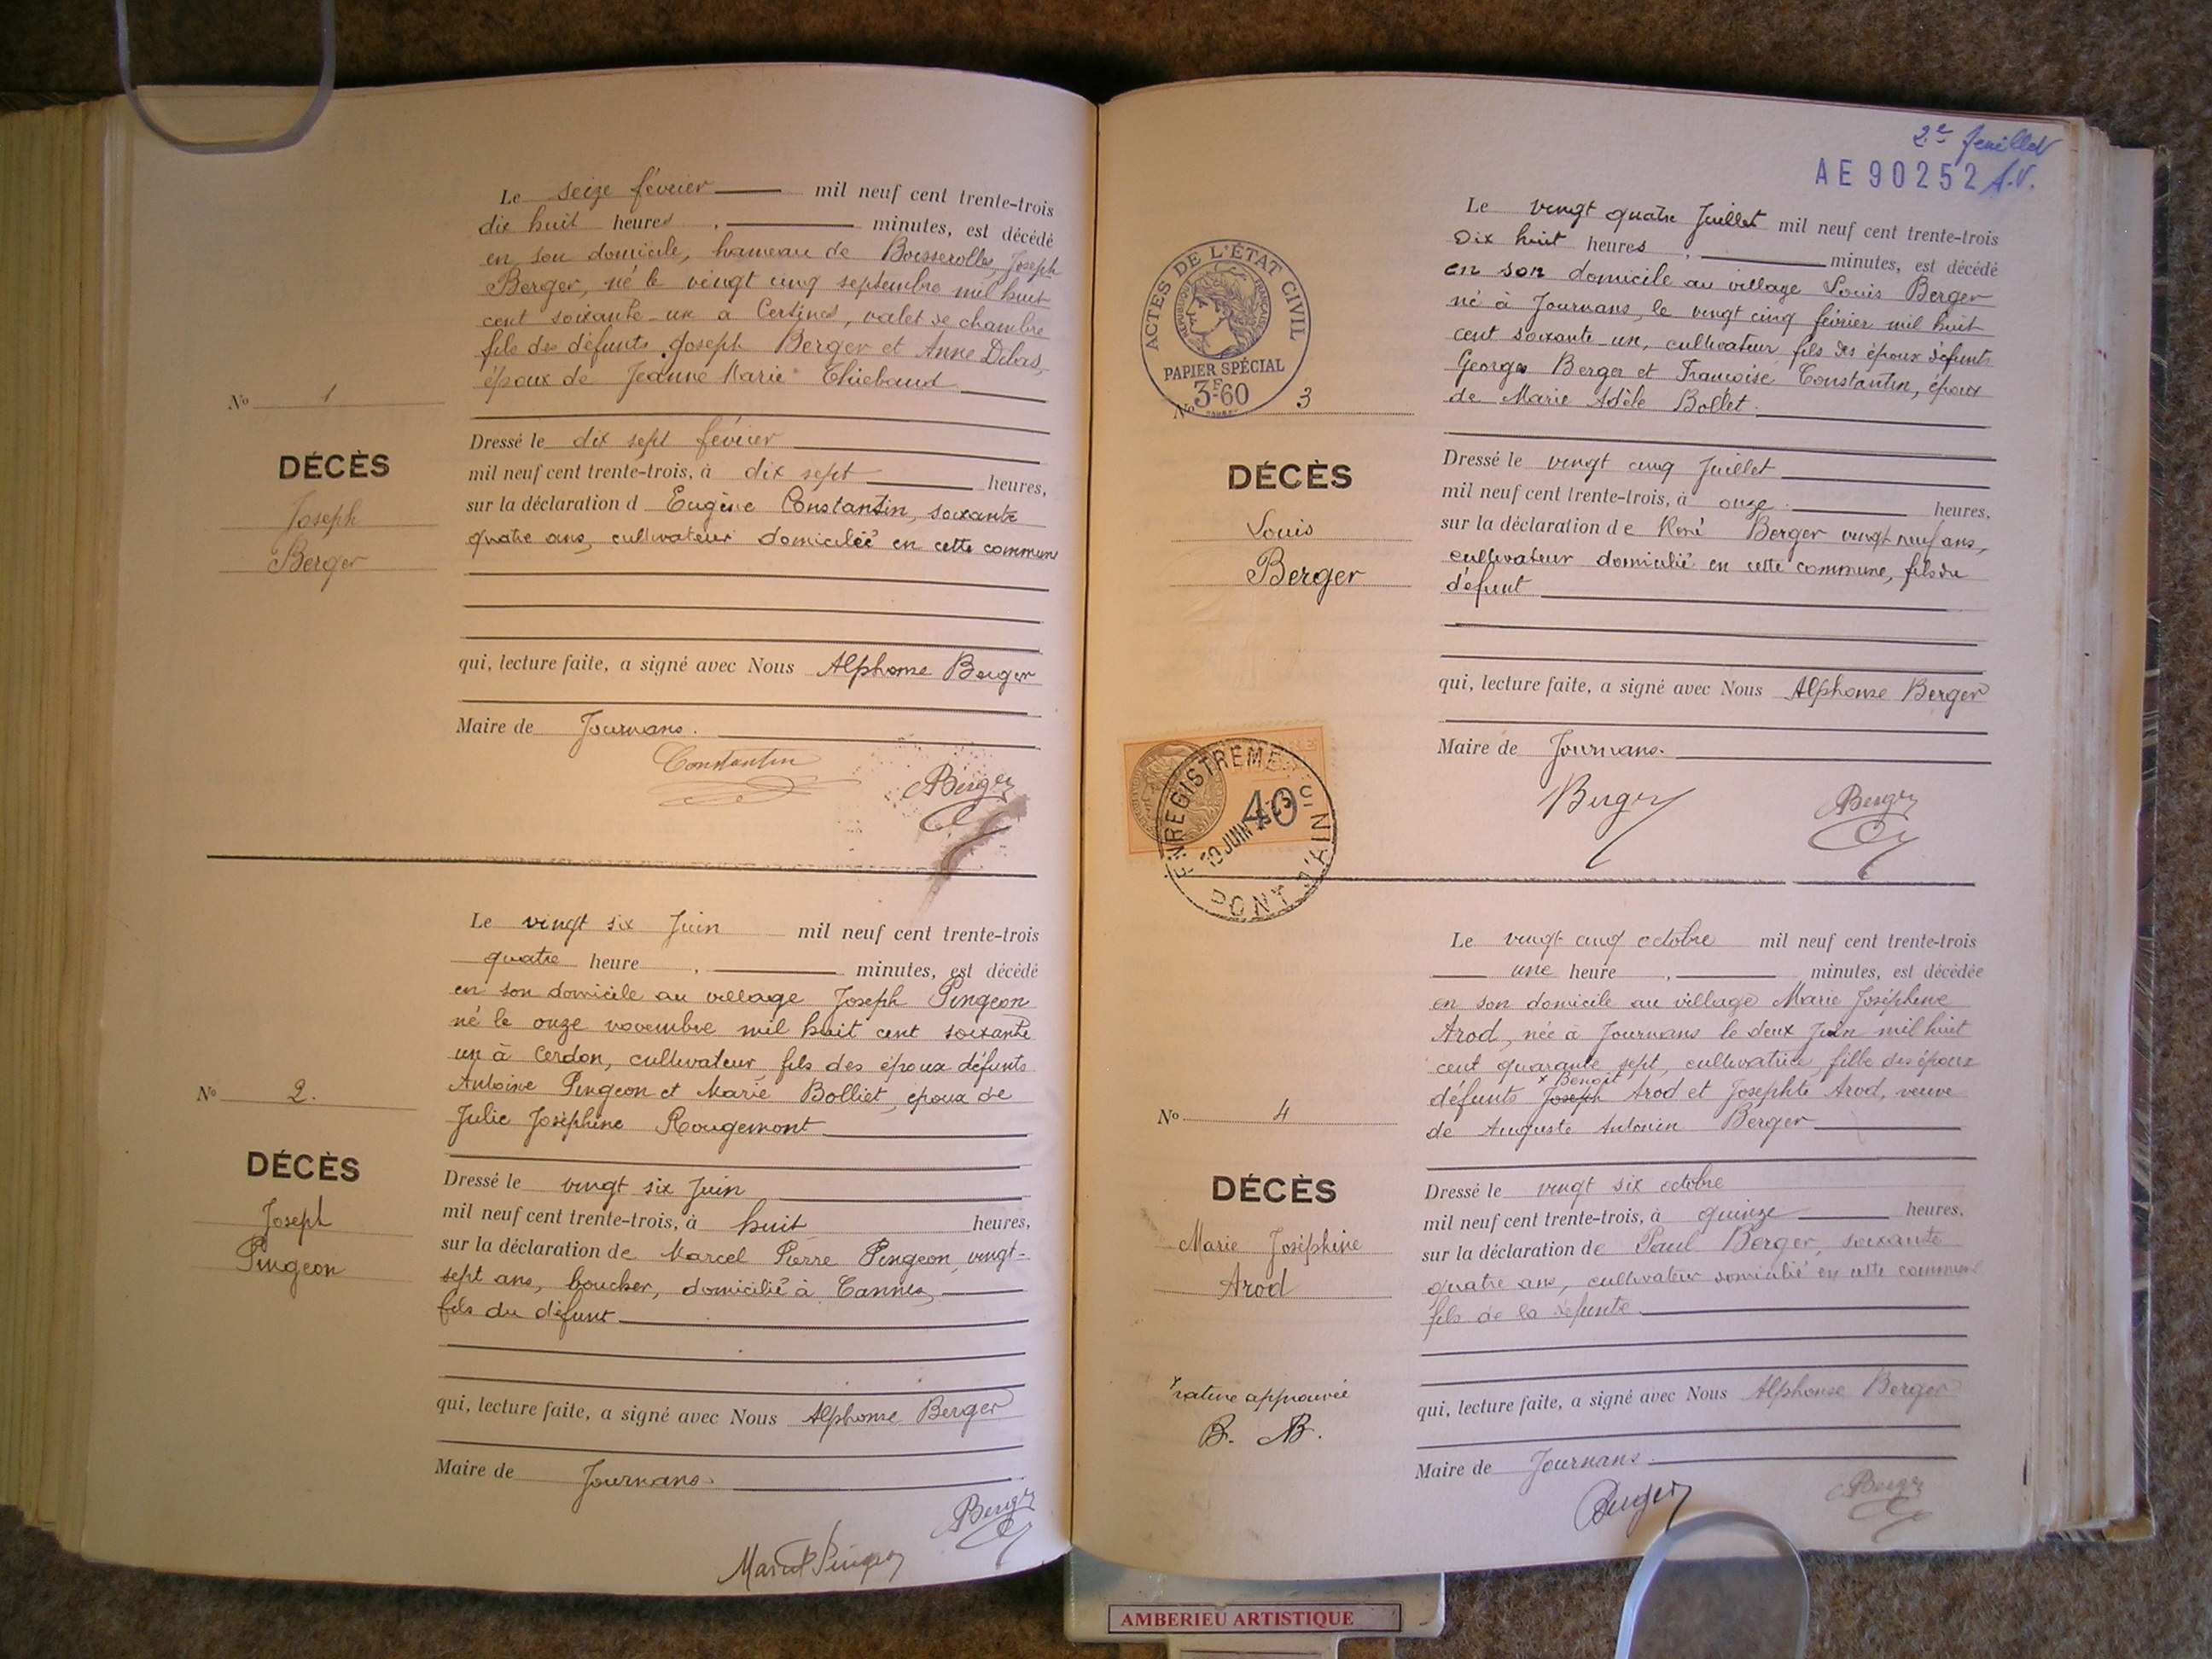 Le seize février mil neuf cent trente-trois
dix huit heures, minutes, est décédé
en son domicile, hameau de Boisserolles, Joseph
Berger, né le vingt cinq septembre mil huit
cent soixante-un à Certines, valet de chambre
fils des défunts Joseph Berger et Anne
époux de Jeanne Marie Thiebaud
No 1
DÉCÈS
Joseph
Berger
Dressé le dix sept février
mil neuf cent trente-trois, à dix sept heures,
sur la déclaration d Eugène Constantin, soixante
quatre ans, cultivateur domicilié en cette commune
qui, lecture faite, a signé avec Nous Alphonse Berger
Maire de Journans.
Constantin
ABerger
Le vingt six Juin mil neuf cent trente-trois
quatre heure, minutes, est décédé
en son domicile au village Joseph Pingeon
né le onze novembre mil huit cent soixante
un à Cerdon, cultivateur, fils des époux défunts
Antoine Pingeon et Marie Bolliet, époux de
Julie Joséphine Rougemont
No 2.
DÉCÈS
Joseph
Pingeon
Dressé le vingt six Juin
mil neuf cent trente-trois, à huit heures,
sur la déclaration de Marcel Pierre Pingeon, vingt-
sept ans, boucher, domicilié à Cannes,
fils du défunt
qui, lecture faite, a signé avec Nous Alphonse Berger
Maire de Journans.
ABerger
Marcel Pingeon
2e feuillet
AE 90252 A.V.
ACTES DE L'ÉTAT CIVIL
RÉPUBLIQUE FRANÇAISE
PAPIER SPÉCIAL
3F60
Le vingt quatre Juillet mil neuf cent trente-trois
Dix huit heures, minutes, est décédé
en son domicile au village Louis Berger
né à Journans, le vingt cinq février mil huit
cent soixante-un, cultivateur, fils des époux défunts
Georges Berger et Francoise Constantin, époux
de Marie Adèle Bollet.
No 3
DÉCÈS
Louis
Berger
Dressé le vingt cinq Juillet
mil neuf cent trente-trois, à onze heures,
sur la déclaration de René Berger vingt neuf ans,
cultivateur domicilié en cette commune, fils du
défunt
qui, lecture faite, a signé avec Nous Alphonse Berger
Maire de Journans.
Berger
ABerger
40
ENREGISTREMENT
10 JUIN
PONT D'AIN
Le vingt-cinq octobre mil neuf cent trente-trois
une heure, minutes, est décédée
en son domicile au village Marie Joséphine
Arod, née à Journans le deux Juin mil huit
cent quarante sept, cultivatrice, fille des époux
x Benoît
défunts Joseph Arod et Josephte Arod, veuve
de Auguste Antonin Berger
No 4
DÉCÈS
Marie Joséphine
Arod
Dressé le vingt six octobre
mil neuf cent trente-trois, à quinze heures,
sur la déclaration de Paul Berger, soixante
quatre ans, cultivateur domicilié en cette commune
fils de la défunte
rature approuvée
B. AB.
qui, lecture faite, a signé avec Nous Alphonse Berger
Maire de Journans.
Berger
ABerger
AMBERIEU ARTISTIQUE